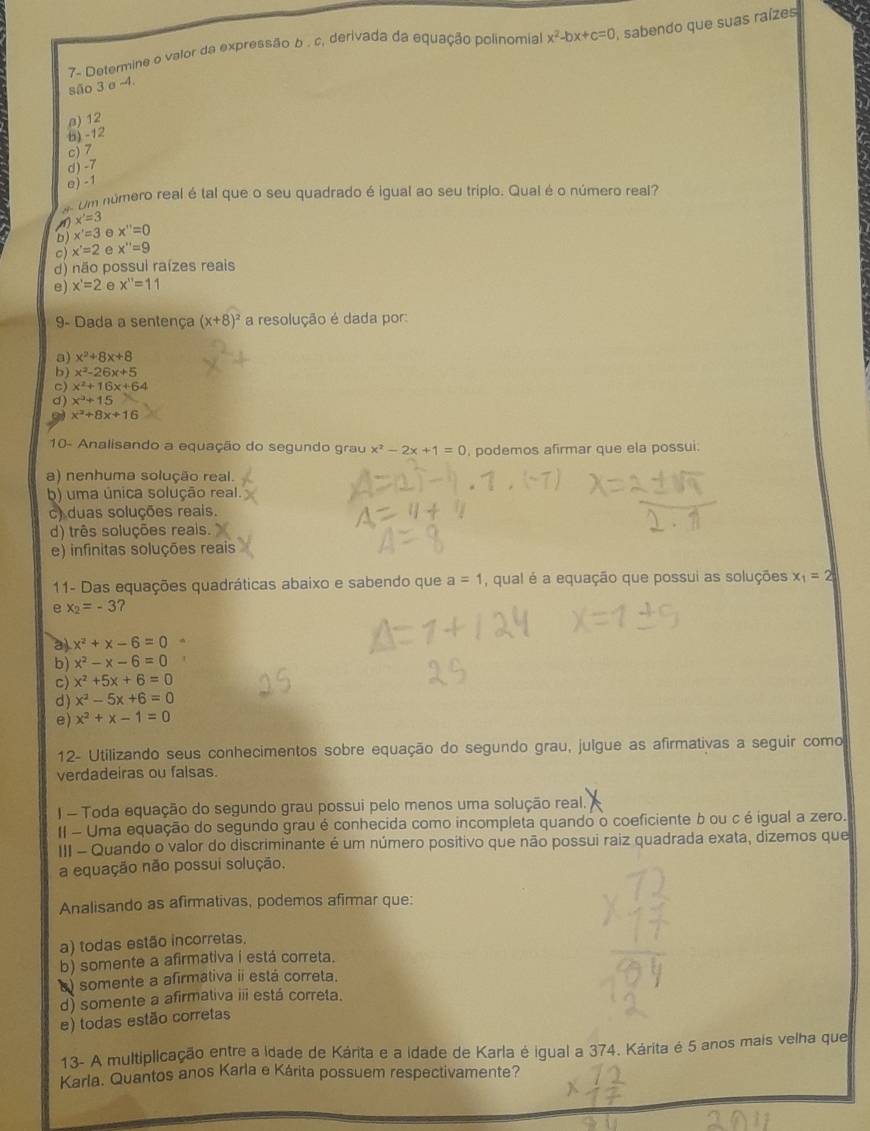 7- Determine o valor da expressão b . c, derivada da equação polinomial x²-bx+c=0, sabendo que suas raízes
são 3 e -4.
a) 12
b) -12
c) 7
d) -7
e) -1
8- Um número real é tal que o seu quadrado é igual ao seu triplo. Qual é o número real?
a) x'=3
b) x'=3 e x''=0
c) x'=2 e x''=9
d) não possui raízes reais
e) x'=2 e x''=11
9- Dada a sentença (x+8)² a resolução é dada por:
a) x²+8x+8
x²+
b) x²-26x+5
c) x²+16x+64
d) x²+15
e) x²+8x+16
10- Analisando a equação do segundo grau x² – 2x +1 = 0, podemos afirmar que ela possui:
a) nenhuma solução real.
b) uma única solução real.
c) duas soluções reais.
d) três soluções reais.
e) infinitas soluções reais
Δ=4+4
Δ=8
2.1
11- Das equações quadráticas abaixo e sabendo que a = 1, qual é a equação que possui as soluções x₁ = 2
e x₂ = - 3?
Δ=1+124
x=1±5
a) x² + x – 6 = 0
b) x² – x – 6 = 0
c) x² +5x + 6 = 0
25
25
d) x² – 5x +6 = 0
e) x² + x – 1 = 0
12- Utilizando seus conhecimentos sobre equação do segundo grau, julgue as afirmativas a seguir como
verdadeiras ou falsas.
I – Toda equação do segundo grau possui pelo menos uma solução real.
II – Uma equação do segundo grau é conhecida como incompleta quando o coeficiente b ou c é igual a zero.
III – Quando o valor do discriminante é um número positivo que não possui raiz quadrada exata, dizemos que
a equação não possui solução.
Analisando as afirmativas, podemos afirmar que:
x 12
17
84
a) todas estão incorretas.
b) somente a afirmativa i está correta.
c) somente a afirmativa ii está correta.
d) somente a afirmativa iii está correta.
e) todas estão corretas
13- A multiplicação entre a idade de Kárita e a idade de Karla é igual a 374. Kárita é 5 anos mais velha que
Karla. Quantos anos Karla e Kárita possuem respectivamente?
x 12
17
84
204